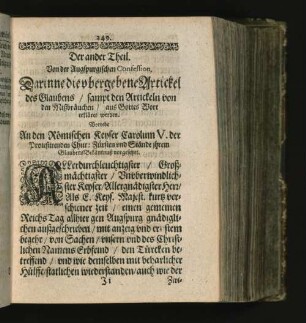 249.
Der ander Theil.
Von der Augspurgischen Confession,
Darinne die vbergebene Artickel
des Glaubens / sampt den Artickeln von
den Mißbräuchen / aus Gottes Wort
erkläret werden.
Vorrede
An den Römischen Keyser Carolum V. der
Protestirenden Chur: Fürsten vnd Stände ihrem
Glaubens Bekäntnuß vorgesetzt.
ALlerdurchleuchtigster / Groß-
mächtigster / Vnüberwindlich-
ster Keyser / Allergnädigster Herr /
Als E. Keys. Majest. kurtz ver-
schiener zeit / einen gemeinen
Reichs Tag allhier gen Augspurg gnädigli-
chen außgeschrieben / mit anzeig vnd ernstem
begehr / von Sachen / vnsern vnd des Christ-
lichen Namens Erbfeind / den Türcken be-
treffend / vnd wie demselben mit beharlicher
Hülffe statlichen wiederstanden / auch wie der
Zwi-